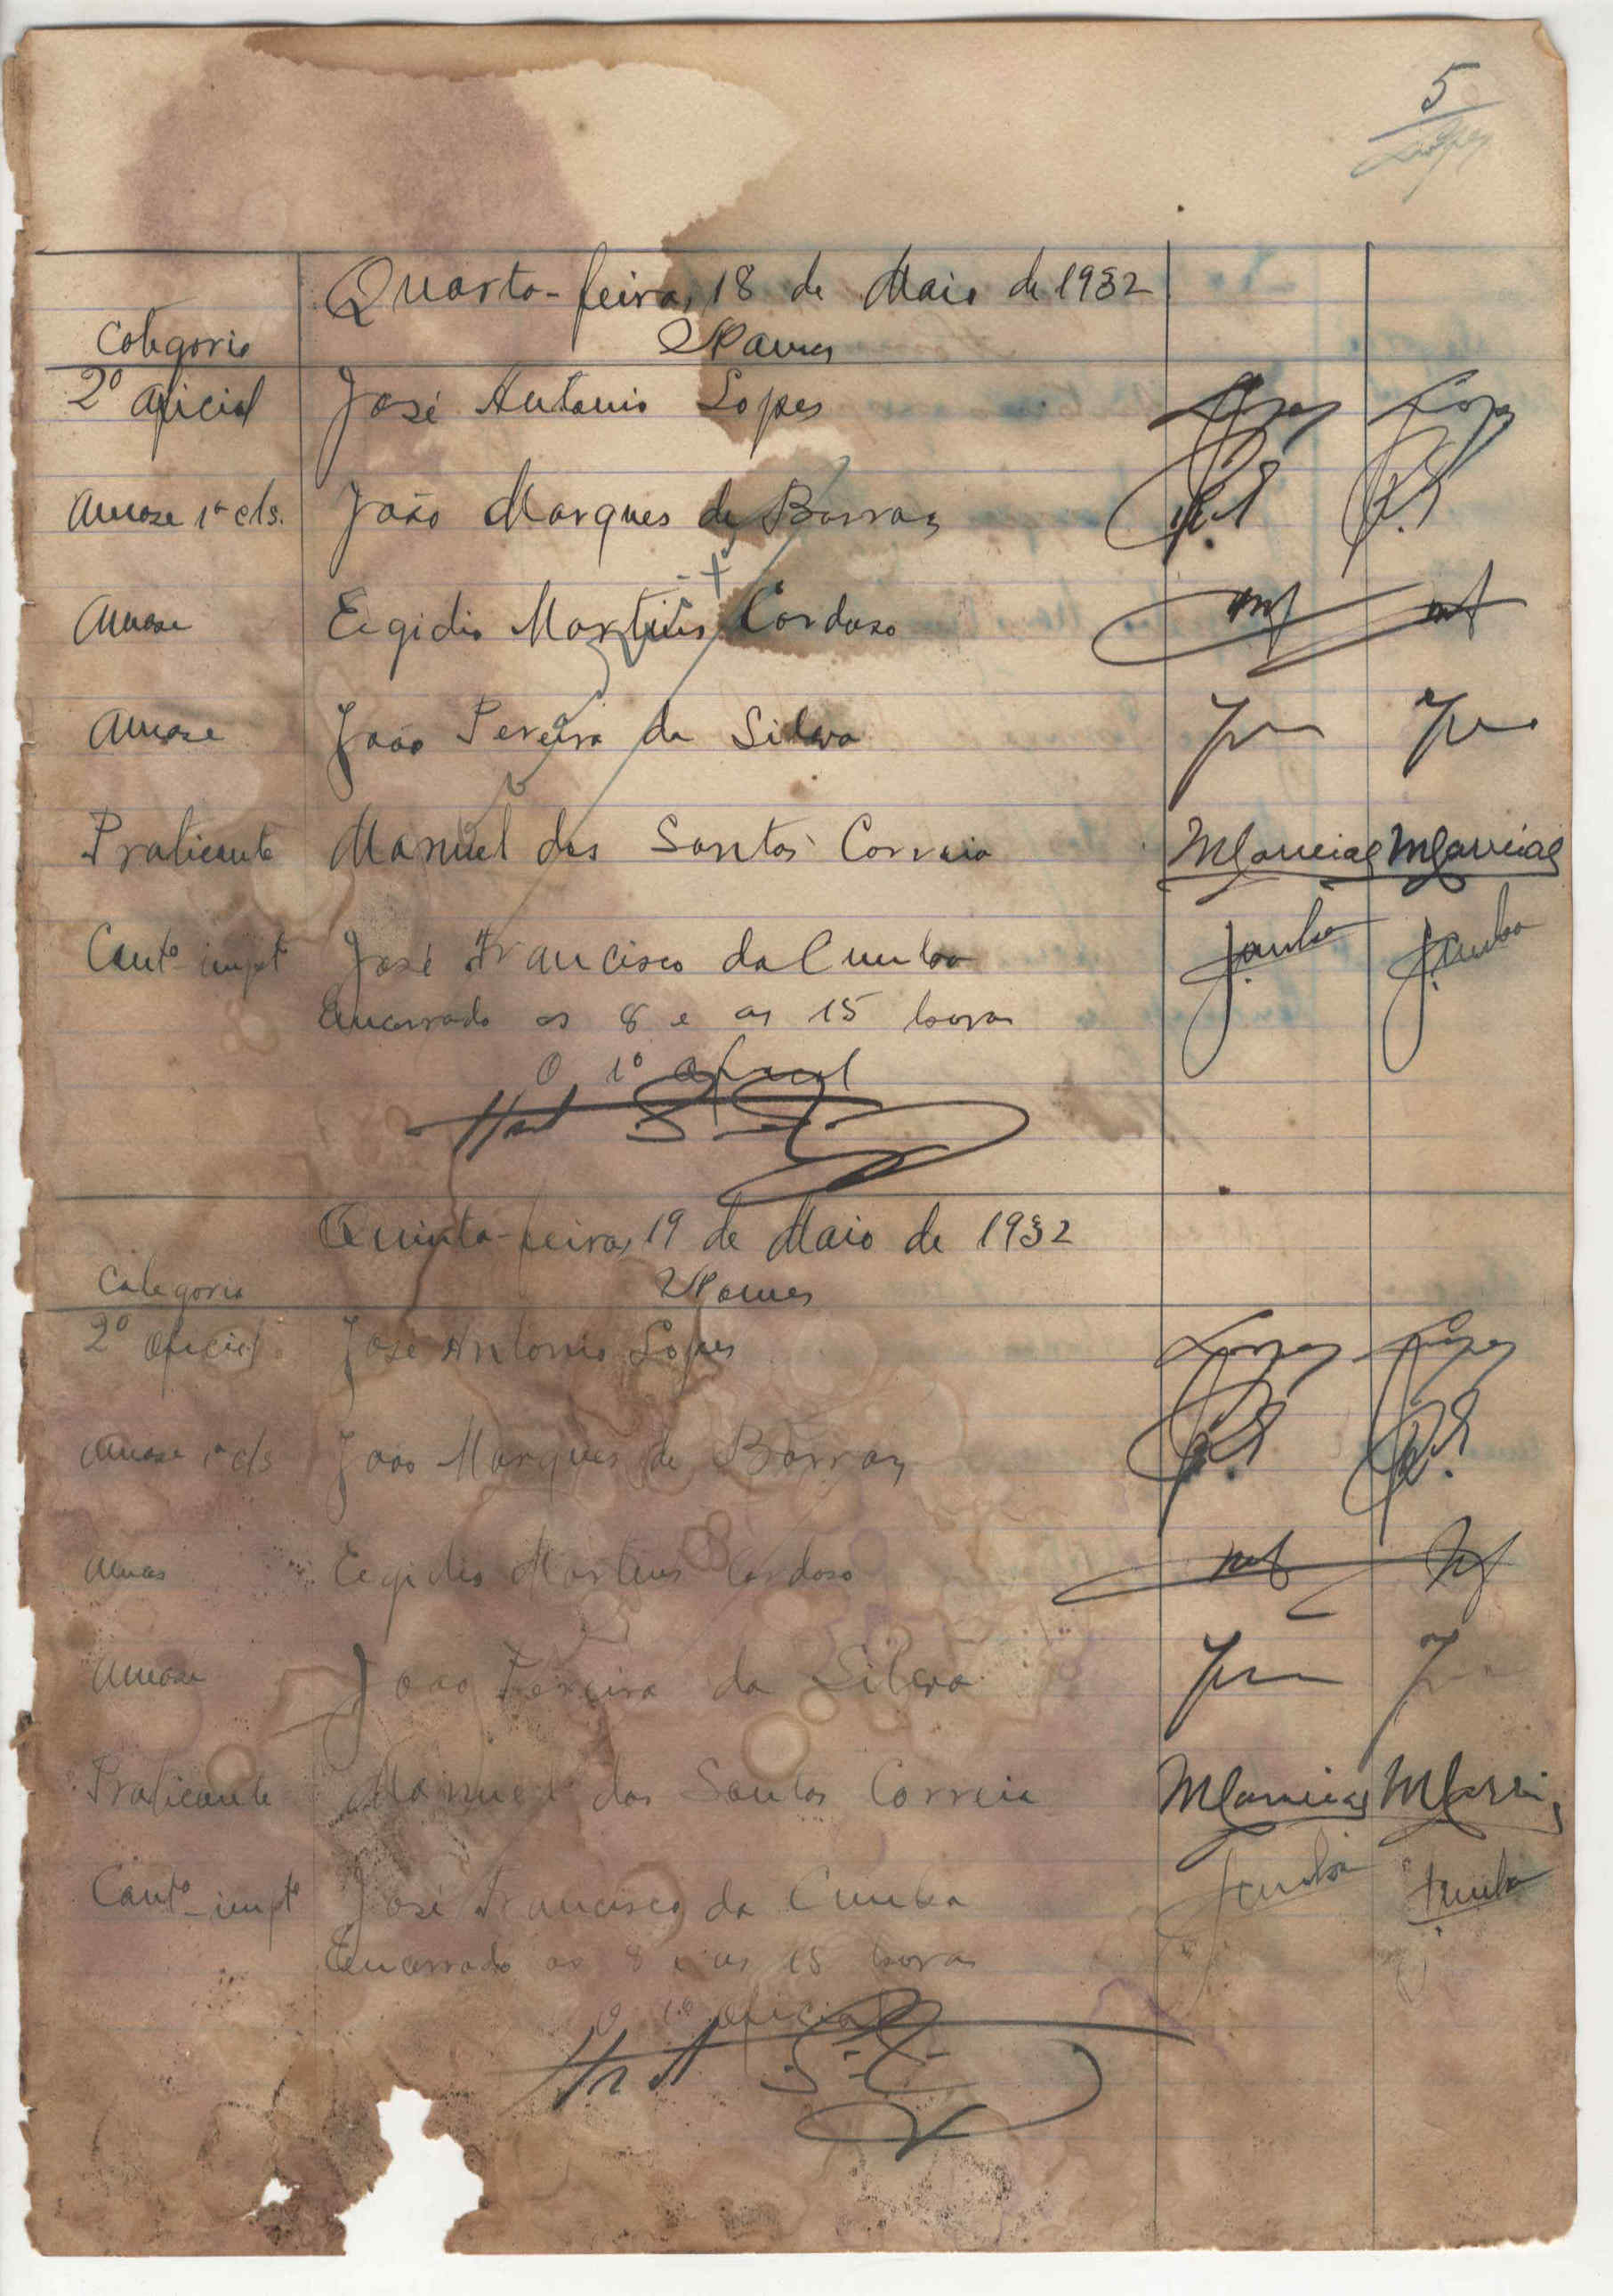 5
Lopes
Quarta-feira, 18 de Maio de 1932
Categoria Nomes
2º oficial José Antonio Lopes Lopes Lopes
1ª cls. João Marques de Barros
Egidio Martins Cardoso
João Pereira da Silva
Praticante Manuel dos Santos Correia
Cantº impt José Francisco da Cunha JCunha JCunha
Encerrado as 8 e as 15 horas
O 1º oficial
Quinta-feira, 19 de Maio de 1932
Categoria Nomes
2º oficial José Antonio Lopes Lopes Lopes
1ª cls João Marques de Barros
Egidio Martins Cardoso
João Pereira da Silva
Praticante Manuel dos Santos Correia
Cantº impt José Francisco da Cunha JCunha JCunha
Encerrado as 8 e as 15 horas
O 1º oficial